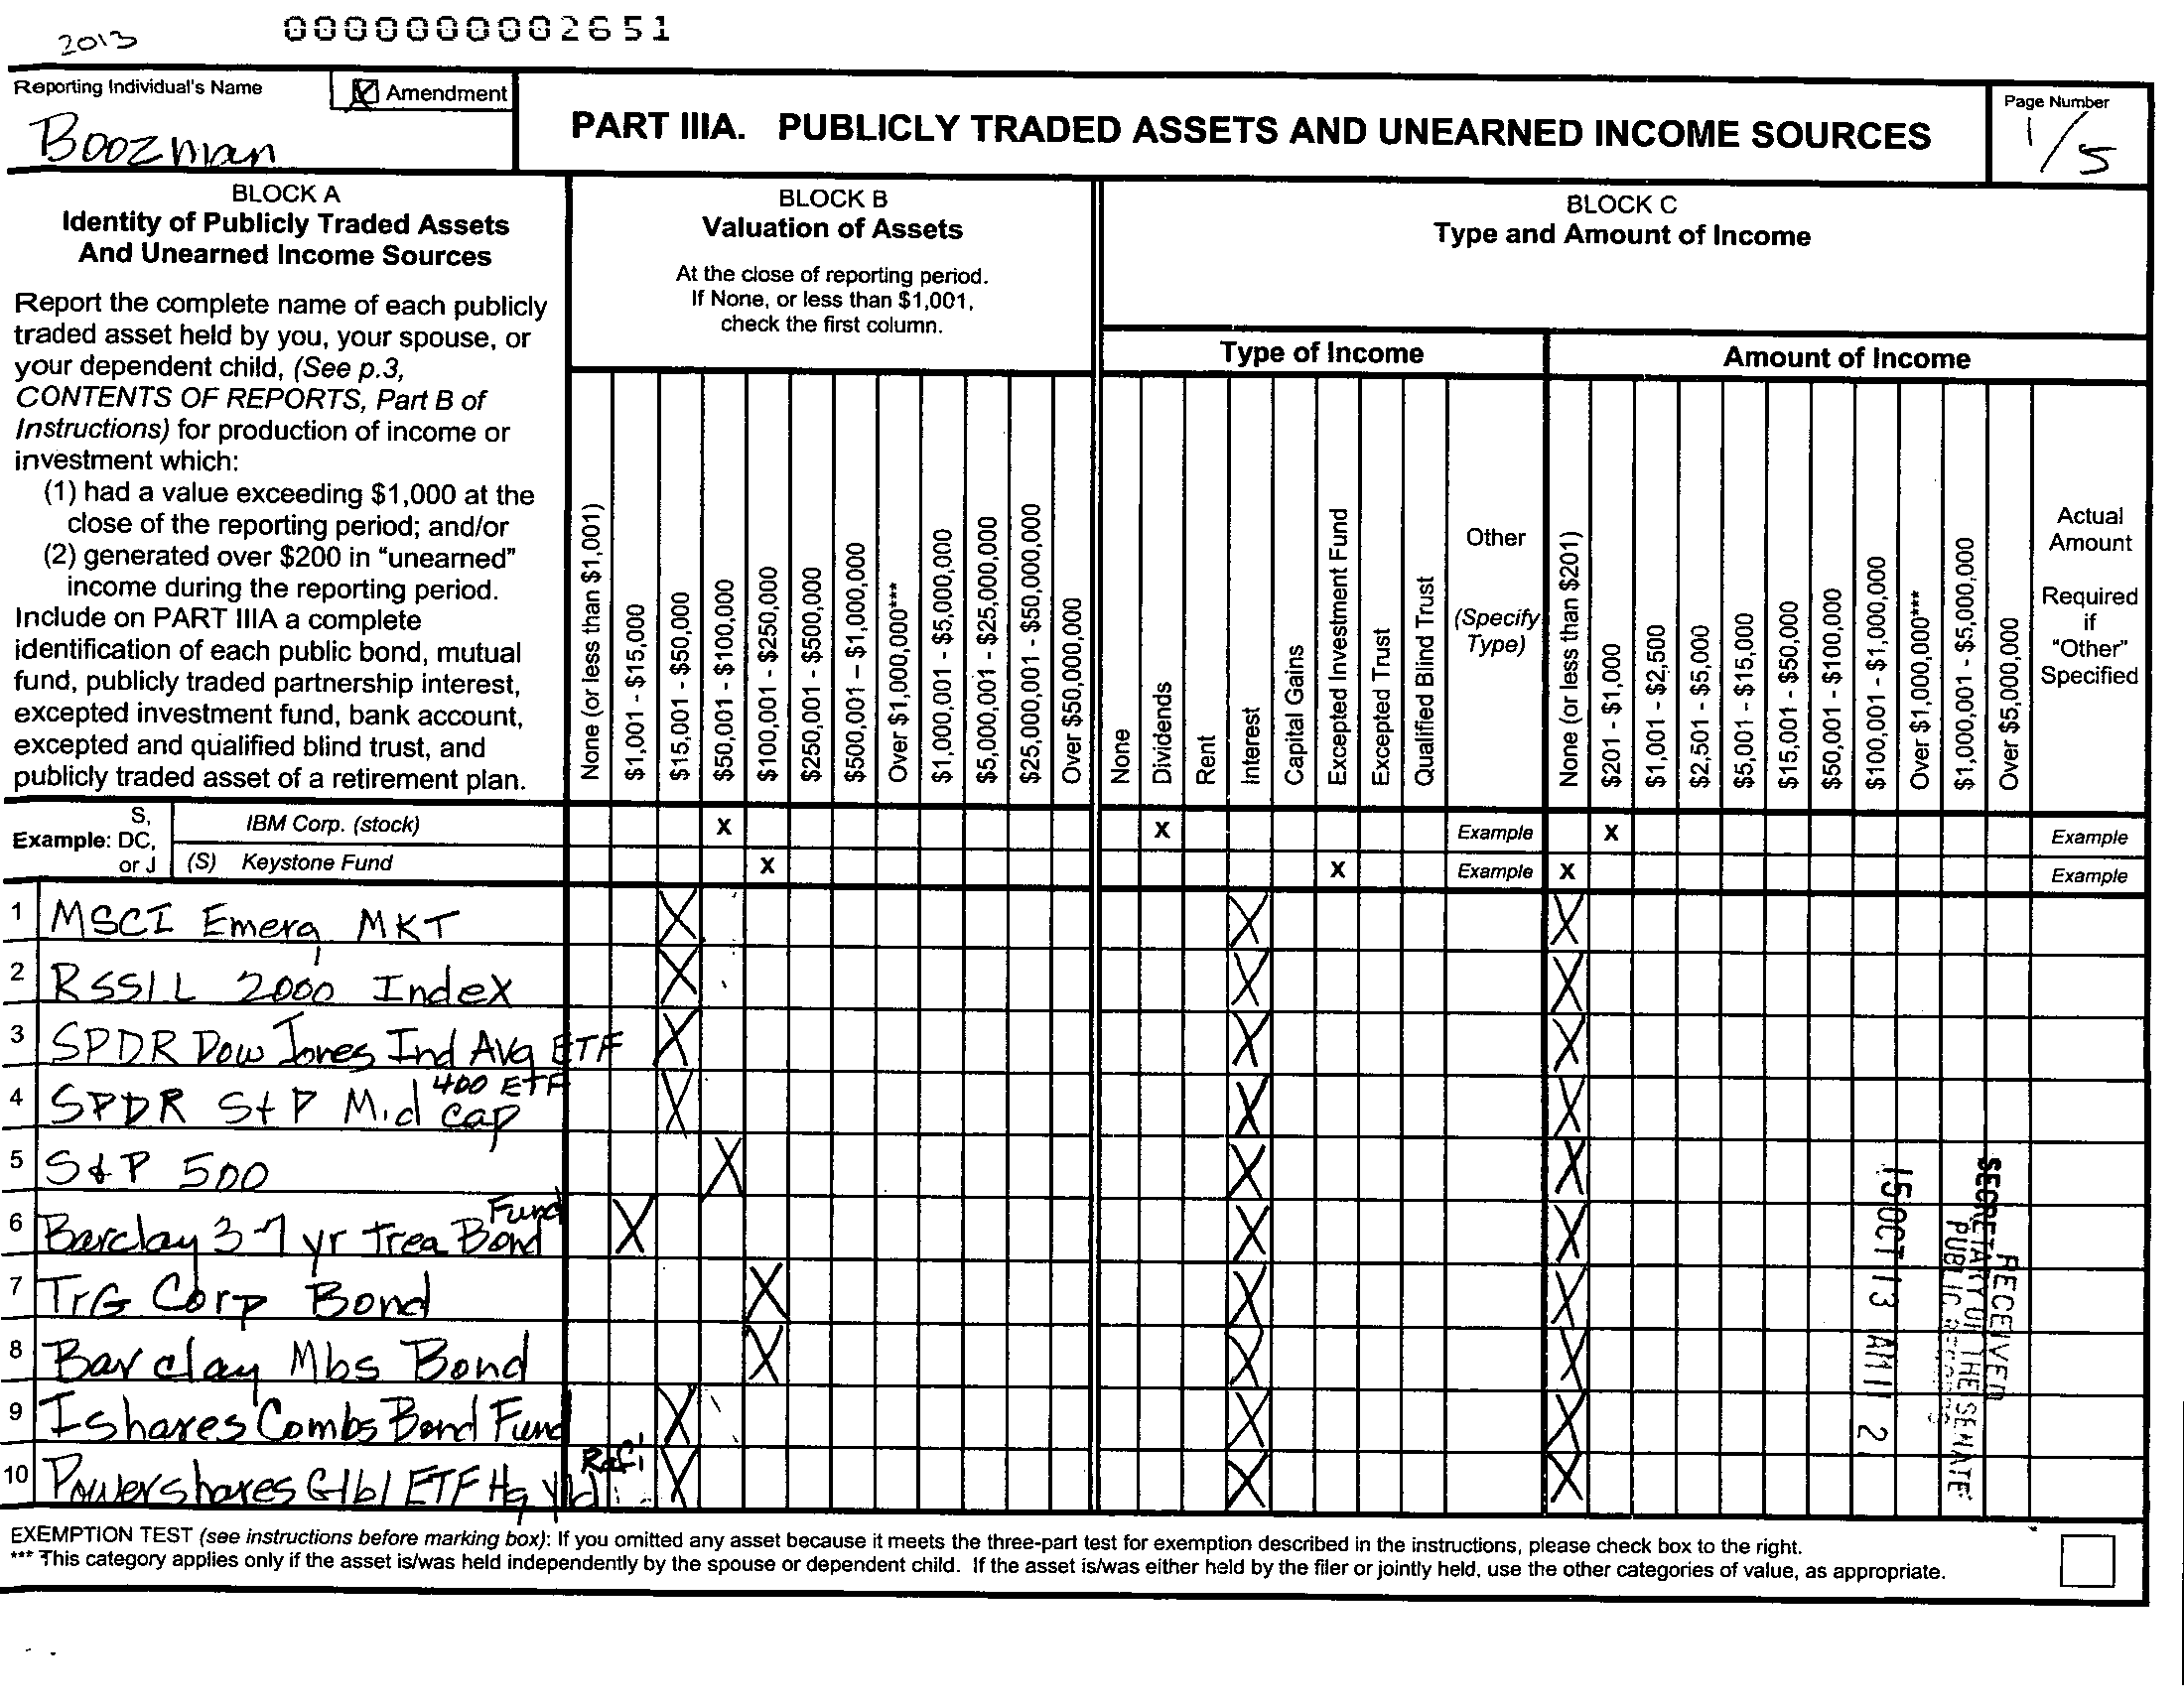 0000000002651
2013
Reporting Individual's Name
Amendment
Boozman
PART IIIA. PUBLICLY TRADED ASSETS AND UNEARNED INCOME SOURCES
Page Number
1/5
BLOCK A
Identity of Publicly Traded Assets
And Unearned Income Sources
Report the complete name of each publicly
traded asset held by you, your spouse, or
your dependent child, (See p.3,
CONTENTS OF REPORTS, Part B of
Instructions) for production of income or
investment which:
(1) had a value exceeding $1,000 at the
close of the reporting period; and/or
(2) generated over $200 in "unearned"
income during the reporting period.
Include on PART IIIA a complete
identification of each public bond, mutual
fund, publicly traded partnership interest,
excepted investment fund, bank account,
excepted and qualified blind trust, and
publicly traded asset of a retirement plan.
BLOCK B
Valuation of Assets
At the close of reporting period.
If None, or less than $1,001,
check the first column.
None (or less than $1,001)
$1,001 - $15,000
$15,001 - $50,000
$50,001 - $100,000
$100,001 - $250,000
$250,001 - $500,000
$500,001 - $1,000,000
Over $1,000,000***
$1,000,001 - $5,000,000
$5,000,001 - $25,000,000
$25,000,001 - $50,000,000
Over $50,000,000
BLOCK C
Type and Amount of Income
Type of Income
None
Dividends
Rent
Interest
Capital Gains
Excepted Investment Fund
Excepted Trust
Qualified Blind Trust
Other
(Specify
Type)
Amount of Income
None (or less than $201)
$201 - $1,000
$1,001 - $2,500
$2,501 - $5,000
$5,001 - $15,000
$15,001 - $50,000
$50,001 - $100,000
$100,001 - $1,000,000
Over $1,000,000***
$1,000,001 - $5,000,000
Over $5,000,000
Actual
Amount
Required
if
"Other"
Specified
Example: S, DC, or J
IBM Corp. (stock) X X Example X Example
(S) Keystone Fund X X Example X Example
1 MSCI Emerg MKT X X X
2 RSSLL 2000 Index X X X
3 SPDR Dow Jones Ind Avg ETF X X X
4 SPDR S+P Mid Cap 400 ETF X X X
5 S&P 500 X X X
6 Barclay 3-7 yr Trea Bond Fund X X X
7 TrG Corp Bond X X X
8 Barclay Mbs Bond X X X
9 Ishares Combs Bond Fund X X X
10 Powershares Glbl ETF Hg Yld Rafi X X X
RECEIVED
SECRETARY OF THE SENATE
PUBLIC
15 OCT 13 AM 11
EXEMPTION TEST (see instructions before marking box): If you omitted any asset because it meets the three-part test for exemption described in the instructions, please check box to the right.
*** This category applies only if the asset is/was held independently by the spouse or dependent child. If the asset is/was either held by the filer or jointly held, use the other categories of value, as appropriate.